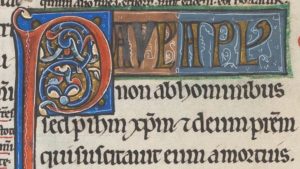 PAVL APL
non abhominibus
sed p ihm xpm & deum prem
qui suscitauit eum a mortuis.